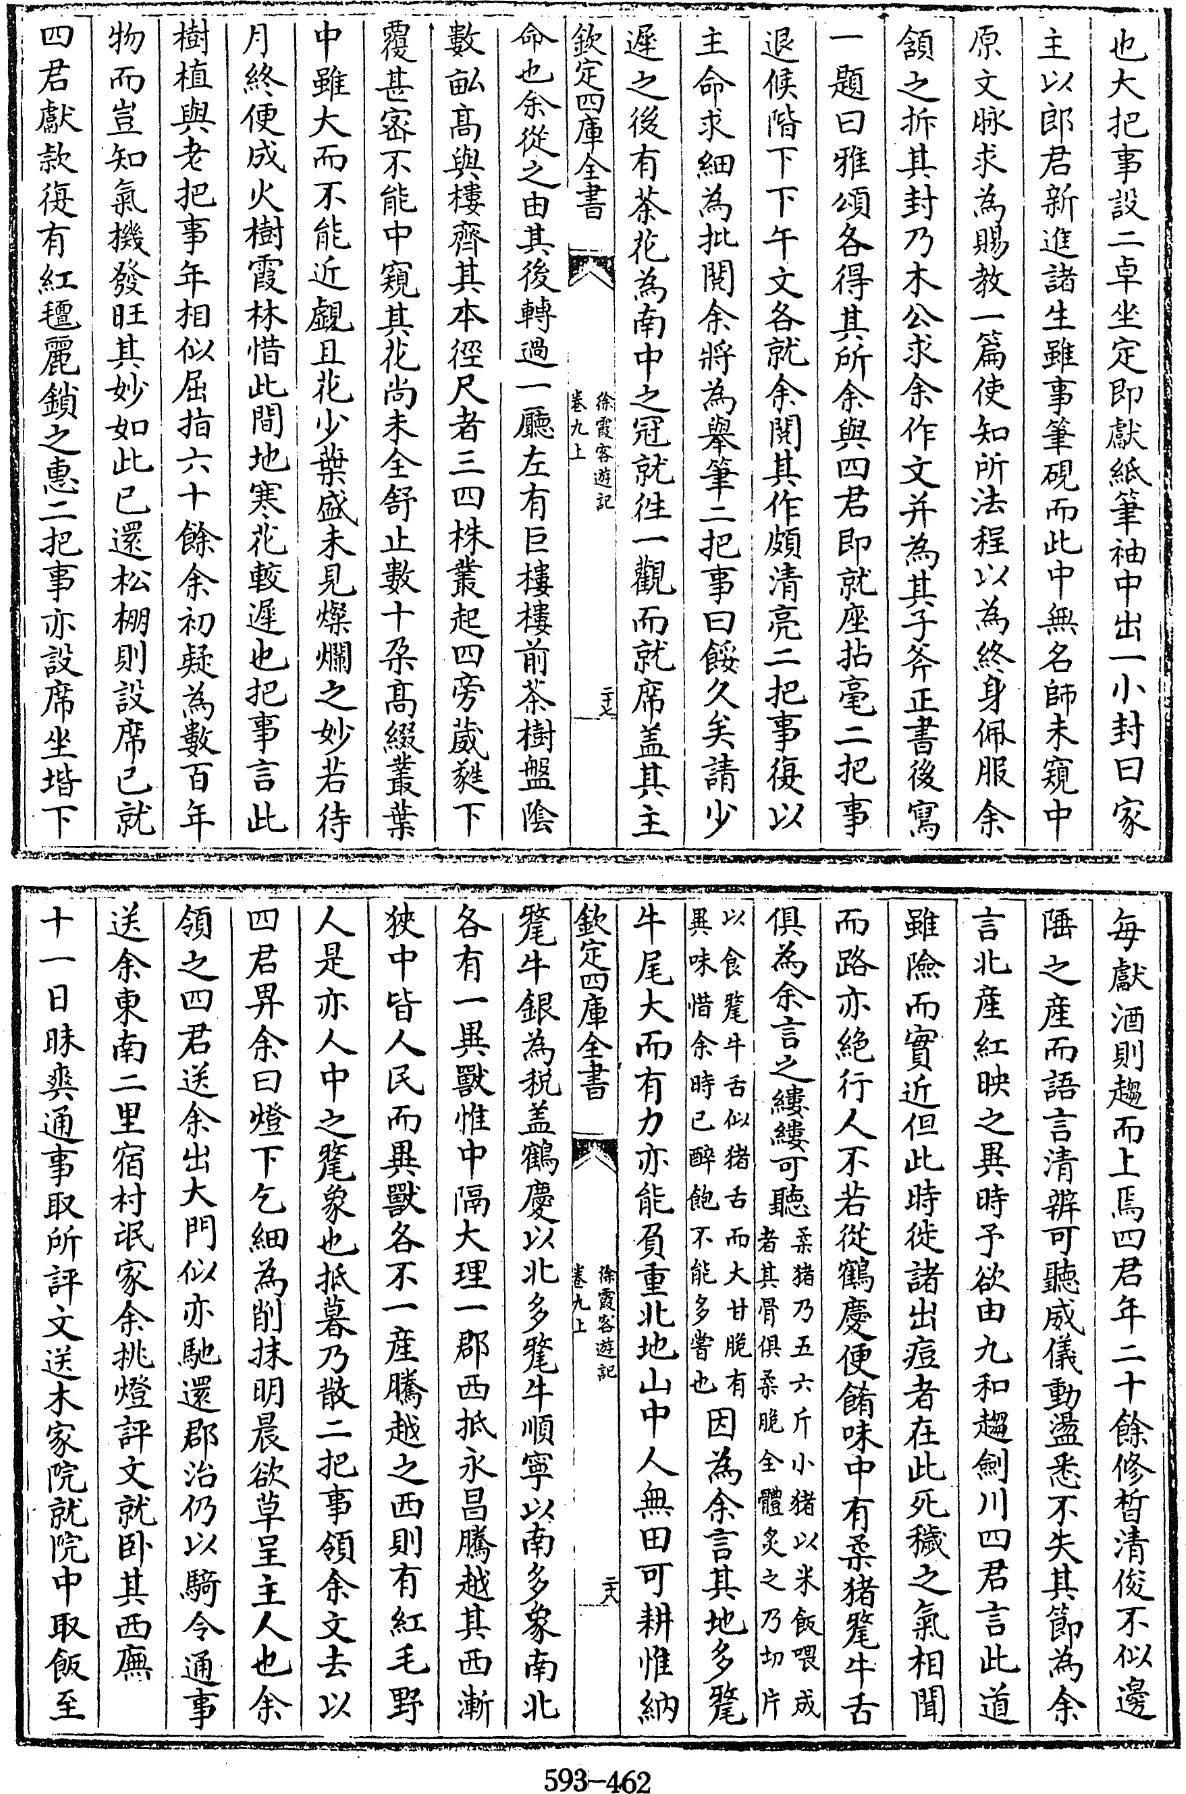 也大把事設二卓坐定即獻紙筆袖中出一小封曰家
主以郎君新進諸生雖事筆硯而此中無名師未窺中
原文脉求為賜教一篇使知所法程以為終身佩服余
頷之拆其封乃木公求余作文并為其子斧正書後寫
一題曰雅頌各得其所余與四君即就座拈毫二把事
退候階下下午文各就余閱其作頗清亮二把事復以
主命求細為批閱余將為舉筆二把事曰餒久矣請少
遲之後有茶花為南中之冠就往一觀而就席盖其主
欽定四庫全書
徐霞客遊記
卷九上
二十七
命也余從之由其後轉過一廳左有巨樓樓前茶樹盤陰
數畝高與樓齊其本徑尺者三四株叢起四旁葳蕤下
覆甚密不能中窺其花尚未全舒止數十朶高綴叢葉
中雖大而不能近覷且花少葉盛未見燦爛之妙若待
月終便成火樹霞林惜此間地寒花較遲也把事言此
樹植與老把事年相似屈指六十餘余初疑為數百年
物而豈知氣機發旺其妙如此已還松棚則設席已就
四君獻款復有紅氊麗鎖之惠二把事亦設席坐堦下
每獻酒則趨而上焉四君年二十餘修晳清俊不似邊
陲之產而語言清辨可聽威儀動盪悉不失其節為余
言北産紅映之異時予欲由九和趨劍川四君言此道
雖險而實近但此時徙諸出痘者在此死穢之氣相聞
而路亦絶行人不若從鶴慶便餚味中有柔猪氂牛舌
俱為余言之縷縷可聽柔猪乃五六斤小猪以米飯喂成
者其骨俱柔脆全體炙之乃切片
以食氂牛舌似猪舌而大甘脆有
異味惜余時已醉飽不能多嘗也因為余言其地多氂
牛尾大而有力亦能負重北地山中人無田可耕惟納
欽定四庫全書
徐霞客遊記
卷九上
二十八
氂牛銀為税盖鶴慶以北多氂牛順寧以南多象南北
各有一異獸惟中隔大理一郡西抵永昌騰越其西漸
狹中皆人民而異獸各不一産騰越之西則有紅毛野
人是亦人中之氂象也抵暮乃散二把事領余文去以
四君畀余曰燈下乞細為削抹明晨欲草呈主人也余
領之四君送余出大門似亦馳還郡治仍以騎令通事
送余東南二里宿村氓家余挑燈評文就卧其西廡
十一日昧爽通事取所評文送木家院就院中取飯至
593-462